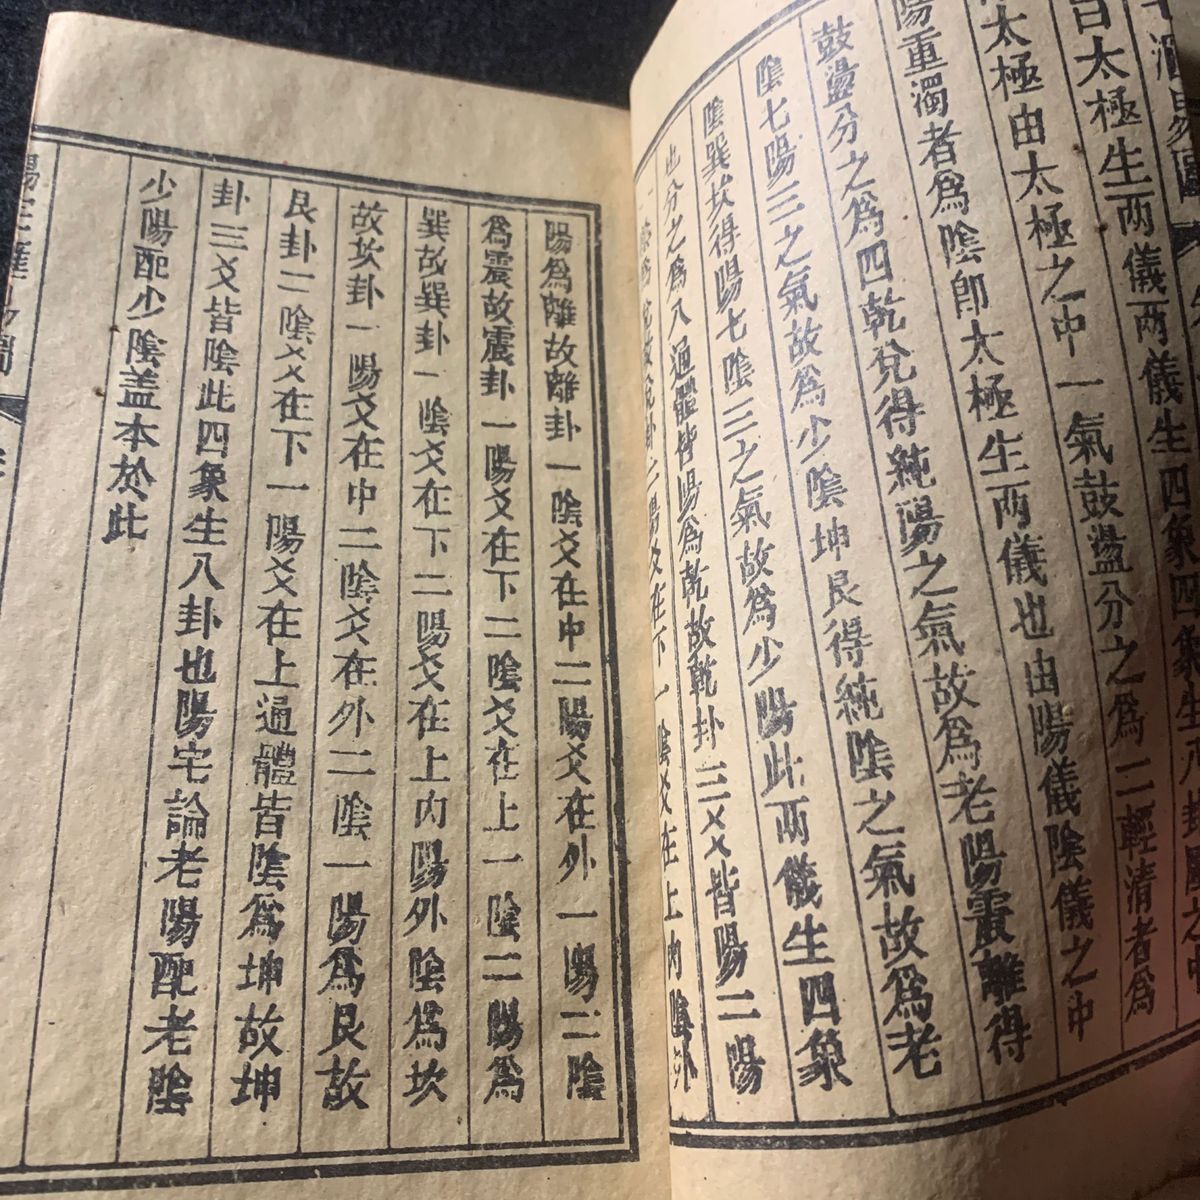 曰太極生兩儀兩儀生四象四象生八卦
太極由太極之中一氣鼓盪分之為二輕清者為
陽重濁者為陰卽太極生兩儀也由陽儀陰儀之中
鼓盪分之為四乾兌得純陽之氣故為老陽震離得
陰七陽三之氣故為少陰坤艮得純陰之氣故為老
陰巽坎得陽七陰三之氣故為少陽此兩儀生四象
也分之為八通體皆陽為乾故乾卦三爻皆陽二陽
陽為離故離卦一陰爻在中二陽爻在外一陽二陰
為震故震卦一陽爻在下二陰爻在上一陰二陽為
巽故巽卦一陰爻在下二陽爻在上內陽外陰為坎
故坎卦一陽爻在中二陰爻在外二陰一陽為艮故
艮卦二陰爻在下一陽爻在上通體皆陰為坤故坤
卦三爻皆陰此四象生八卦也陽宅論老陽配老陰
少陽配少陰盖本於此